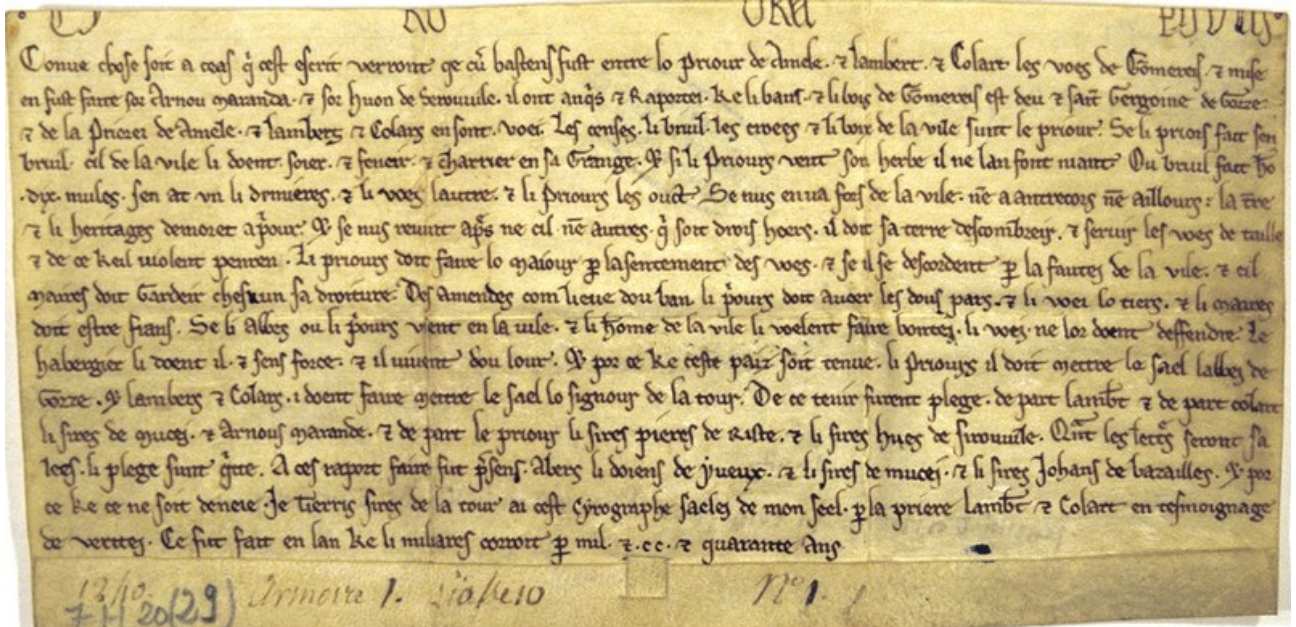 Conue chose soit a ceas q̄ cest escrit verront qe cū bastens fust entre lo priour de Amele · ⁊ lambert · ⁊ Colart les voes de Gōmereis · ⁊ mise
en fust faite sor Arnou maranda · ⁊ sor huon de Serouuile · il ont anq̄s ⁊ Raportei · Ke li bans · ⁊ li bois de Gōmereis est deu ⁊ saīt Gergoine de Gorze
⁊ de la Priorei de Amele · ⁊ lambers ⁊ Colars en sont · voei · Les censes · li bruil · les crowes ⁊ li boix de la vile sunt le priour · Se li priors fait sen
bruil · cil de la vile li doent · soier · ⁊ feneir · ⁊ charrier en sa Grange · Et si li Priours vent son herbe il ne lan font niant Ou bruil fait hō
· dix · mules · sen at vn li dimieres · ⁊ li voes lautre · ⁊ li priours les ouct Se nus en ua fors de la vile · nē a antrecors nē aillours : la t̄re
⁊ li heritages demoret a p̄our · Et se nus reuint ap̄s ne cil nē autres · q̄ soit drois hoers · il doit sa terre descombreir · ⁊ seruir les voes de taille
⁊ de ce keil uiolent penren · Li priours doit faire lo maiour p̱ lasentement des voes · ⁊ se il se descordent p̱ la fautei de la vile · ⁊ cil
maires doit Gardeir chesxun sa droiture · Des amendes com lieue dou ban li p̄ours doit auoer les dous pars · ⁊ li voei lo tiers · ⁊ li maires
doit estre fians · Se li abbes ou li p̄ours vient en la uile · ⁊ li hōme de la vile li woelent faire bontei · li woei · ne lor doent deffendre · Le
habergiet li doent il · ⁊ sens force · ⁊ il uiuent dou lour · Et por ce Ke ceste paix soit tenue · li Priours il doit mettre le sael labbei de
Gorze · Et lambers ⁊ Colars · i doent faire mettre le sael lo signour de la tour · De ce tenir furent plege · de part lamb̄t ⁊ de part colart
li sires de mucei · ⁊ Arnous marande · ⁊ de part le priour li sires pieres de Riste · ⁊ li sires hues de sirouuile · Qn̄t les lettr̄s seront sa
lees · li plege sunt q̄te · A ces raport faire fut p̄sens · Abers li doiens de yueux · ⁊ li sires de mucei · ⁊ li sires Johans de bazailles · Et por
ce Ke ce ne soit deneie · Je Tierris sires de la tour ai cest cyrographe saelei de mon seel · p̱ la priere lamb̄t ⁊ Colart en tesmoignage
de veritei · Ce fut fait en lan Ke li miliares corroit p̱ mil · ⁊ · cc · ⁊ quarante Ans
1240. Armoire 1. No 1
7 H 20(29)